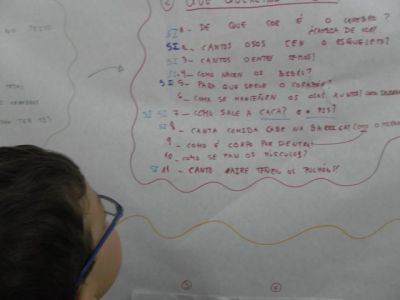 NO PEITO
2 QUE QUEREMOS
SI 1 - DE QUE COR É O CEREBRO?
¿CAMBIA DE COR?
SI 2 - CANTOS OSOS TEN O ESQUELETO?
SI 3 - CANTOS DENTES TEMOS?
SI 4 - COMO NACEN OS BEBES?
SI 5 - PARA QUE SERVE O CORAZÓN?
6 - COMO SE MANTEÑEN OS OSOS XUNTOS?
SI SI 7 - COMO SALE A CACA? E O PIS?
SI 8 - CANTA COMIDA CABE NA BARRIGA?
9 - COMO É CORPO POR DENTRO
10 - COMO SE FAN OS MÚSCULOS?
SI 11 - CANTO AIRE TEÑEN OS PULMÓNS?